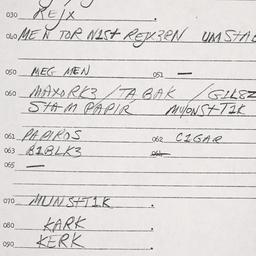 030 REJX .
040 MEN TOR N1St REJX3RN UMSTAD
050 MEG MEN 051 —
060 MAXORK3 / TABAK / G1L8Z
STAM PAPIR MUONSHT1K
061 PAPIROS 062 C1GAR
063 B1BLK3 064
065 —
070 MUNSHT1K .
080 KARK .
090 KERK .